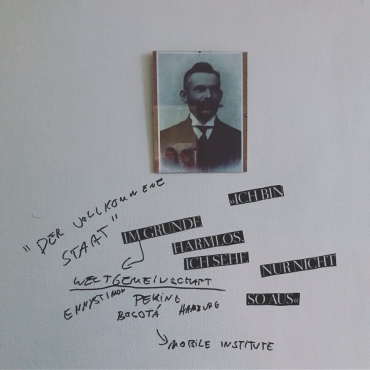 »ICH BIN
IM GRUNDE
HARMLOS.
ICH SEHE
NUR NICHT
SO AUS«
"DER VOLLKOMMENE
STAAT"
WELTGEMEINSCHAFT
PEKING
BOGOTÁ HAMBURG
MOBILE INSTITUTE